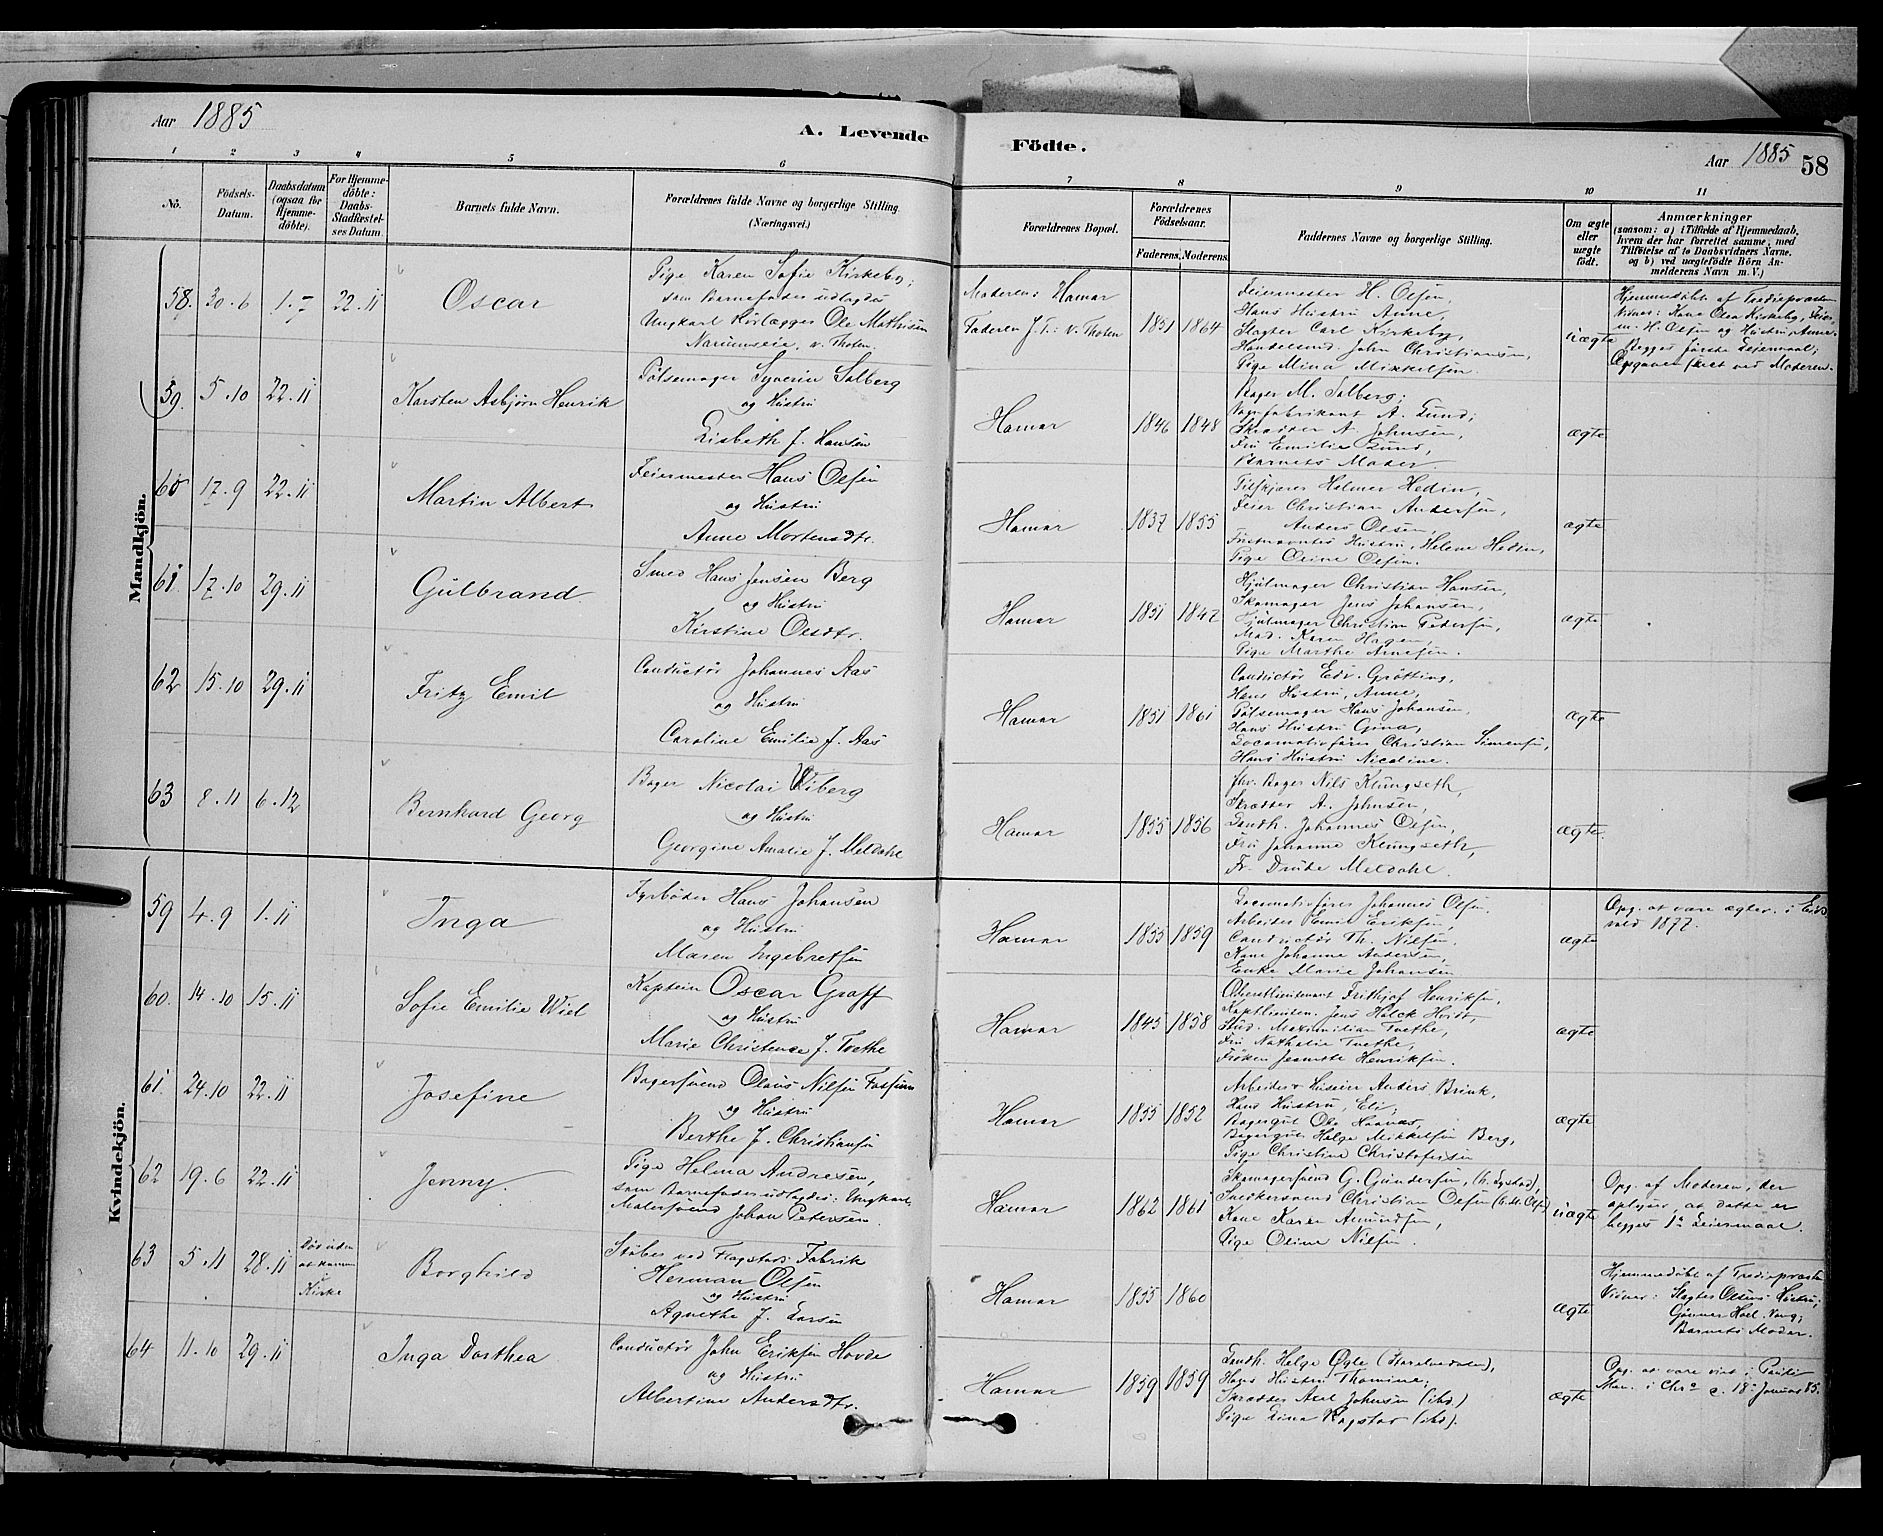 Aar 1885
A. Levende Födte.
Aar 1885 58
1 2 3 4 5 6 7 8 9 10 11
No.
Födsels-Datum.
Daabsdatum (ogsaa for Hjemme-döbte).
For Hjemme-döbte: Daabs-Stadfæstel-ses Datum.
Barnets fulde Navn.
Forældrenes fulde Navne og borgerlige Stilling. (Næringsvei.)
Forældrenes Bopæl.
Forældrenes Födselsaar.
Faderens. Moderens.
Faddernes Navne og borgerlige Stilling.
Om ægte eller uægte födt.
Anmærkninger
(saasom: a) i Tilfælde af Hjemmedaab,
hvem der har forrettet samme, med
Tilföielse af to Daabsvidners Navne.
og b) ved uægtefödte Börn An-
melderens Navn m. V.)
Mandkjön.
58. 30.6 1.- 22.11 Oscar
Pige Karen Sofie Kirkeby;
som Barnefader udlagdes
Ungkarl Rörlægger Ole Mathisen
Narumseie, v. Thoten.
Moderens Hamar
Faderen v. Thoten
1851 1864
Feiermester H. Olsen,
Hans Hustru Anne,
Slagter Carl Kirkeby,
Handelsmd. John Christiansen,
Pige Mina Mikkelsen.
uægte
Hjemmedöbt af Trediepræsten
Vidner: Kone Olea Kirkeby, Feier-
m. H. Olsen og Hustru Anne.
Begges förste Leiermaal;
Opgaven skeet ved Moderen.
59. 5.10 22.11 Karsten Asbjörn Henrik
Pölsemager Syverin Solberg
og Hustru
Lisbeth J. Hansen
Hamar 1846 1848
Bager M. Solberg;
Vognfabrikant A. Lund;
Skrædder A. Johnsen,
Fru Emilie Lund,
Barnets Moder.
ægte
60 17.9 22.11 Martin Albert
Feiermester Hans Olsen
og Hustru
Anne Mortensdtr.
Hamar 1837 1855
Filskjærer Helmer Hedin,
Feier Christian Andersen,
Anders Olsen,
Förstnævntes Hustru, Helene Hedin,
Pige Oline Olsen.
ægte
61 17.10 29.11 Gulbrand
Smed Hans Jensen Berg
og Hustru
Kirstine Olsdtr.
Hamar 1851 1847
Hjulmager Christian Hansen,
Skomager Jens Johansen,
Hjulmager Christian Pedersen,
Mad. Karen Hagen,
Pige Marthe Arnesen.
ægte
62 15.10 29.11 Fritz Emil
Conductör Johannes Aas
og Hustru
Caroline Emilie J. Aas
Hamar 1851 1861
Conductör Edv. Grötting,
Hans Hustru, Anne,
Pölsemager Hans Johansen,
Hans Hustru Gina,
Locomotivförer Christian Simensen,
Hans Hustru Nicoline.
ægte
63 8.11 6.12 Bernhard Georg
Bager Nicolai Wiberg
og Hustru
Georgine Amalie J. Meldahl
Hamar 1855 1856
fhv. Bager Nils Klungseth,
Skrædder A. Johnsen,
Landh. Johannes Olsen,
Fru Johanne Klungseth,
Fr. Drude Meldahl.
ægte.
Kvindekjön.
59 4.9 1.11 Inga
Fyrböder Hans Johansen
og Hustru
Maren Ingebretsen
Hamar 1855 1859
Locomotivförer Johannes Olsen.
Arbeider Emil Eriksen,
Conductör Th. Nilsen,
Kone Johanne Andersen,
Enke Marie Johansen
ægte
Opg. at være ægtev. i Eids-
vold 1877.
60. 14.10 15.11 Sofie Emilie Wiel
Kaptein Oscar Graff
og Hustru
Marie Christence J. Tvethe
Hamar 1845 1858
Oberstlieutenant Frithjof Henriksen,
Kaptlieuten. Jens Holck Hvidt,
Stud. Maximilian Tvethe,
Fru Nathalie Tvethe,
Fröken Jeanette Henriksen.
ægte
61. 24.10 22.11 Josefine
Bagersvend Olaus Nilsen Fossum
og Hustru
Berthe J. Christiansen
Hamar 1855 1852
Arbeider Anders Brink,
Hans Hustru, Eli,
Bagergut Ole Haanæs,
Bagergut Helge Mikkelsen Berg,
Pige Christine Christofersen
ægte
62 19.6 22.11 Jenny.
Pige Helma Andresen,
som Barnefader udlagdes: Ungkarl
Malersvend Johan Petersen.
Hamar 1862 1861
Skomagersvend G. Gundersen,
Snedkersvend Christian Olsen
Kone Karen Amundsen,
Pige Oline Nilsen.
uægte
Opg. af Moderen, der
oplyser, at dette er
begges 1ste Leiermaal.
63 5.11 28.11 Död uden at komme i Kirke
Borghild
Stöber ved Flagstads Fabrik
Herman Olsen
og Hustru
Agnethe J. Larsen
Hamar 1855 1860
ægte
Hjemmedöbt af Trediepræsten
Vidner: Slagter Olsens Hustru;
Barnets Moder.
64 11.10 29.11 Inga Dorthea
Conductör John Eriksen Hovde
og Hustru
Albertine Andersdtr.
Hamar 1859 1859
Landh. Helge Øgle
Hans Hustru Thomine,
Skrædder Axel Johnsen (ibd.)
Pige Lina Kogstad (ibd).
ægte
Opg. at være viet i
i Chra. d. 18. Januar 85.